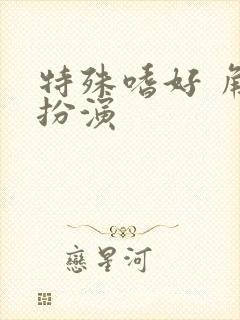 特殊嗜好 角
扮演
戀星河